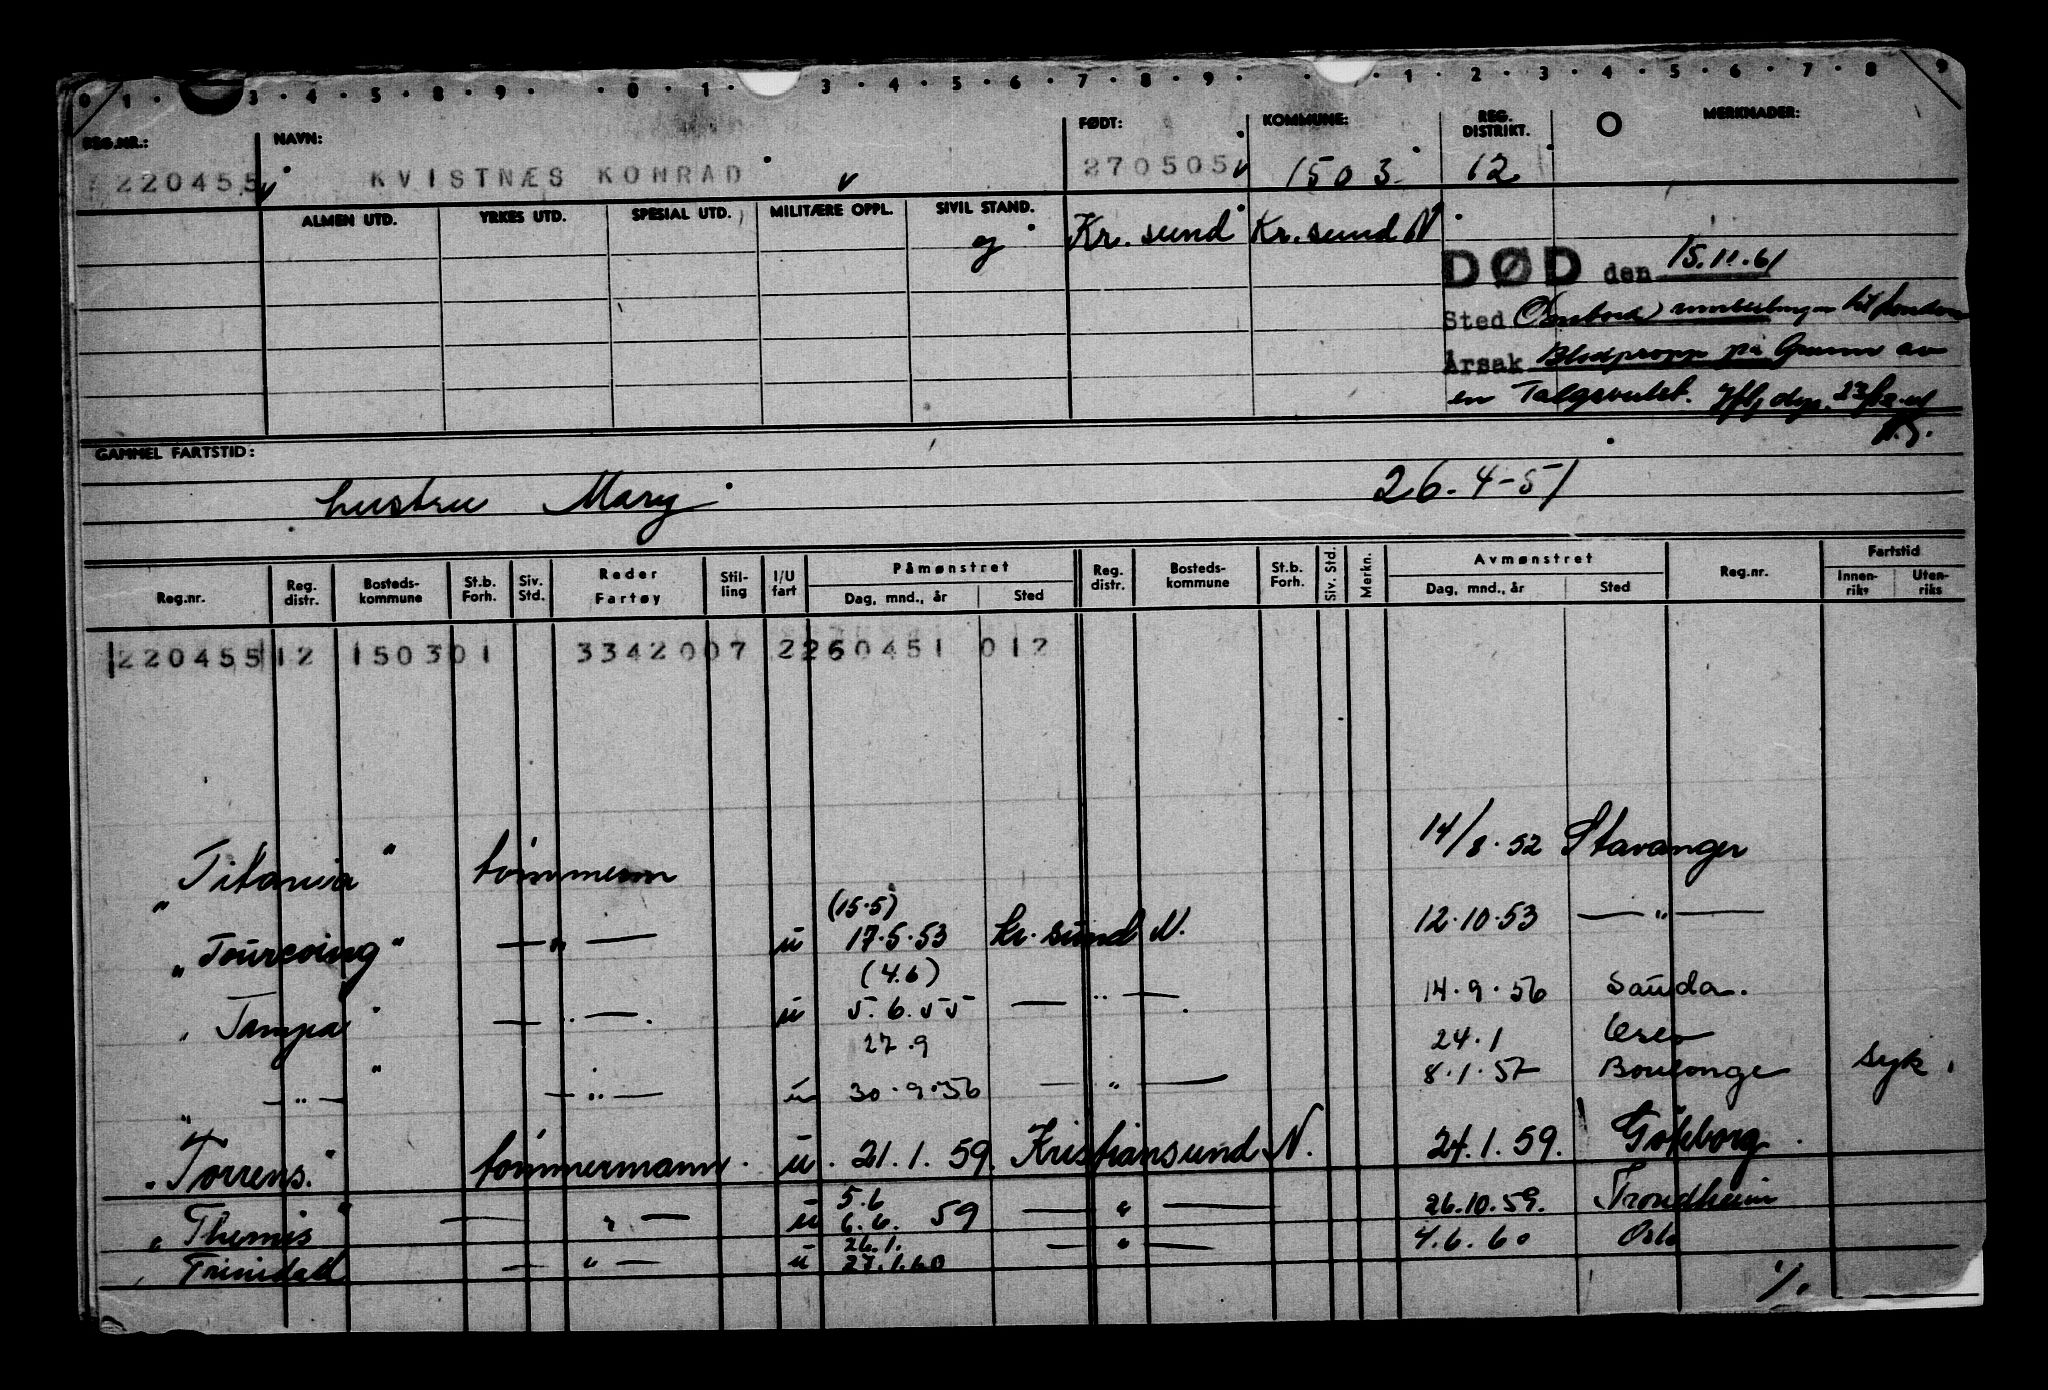 0 1 · 3 · 4 · 5 · 8 · 9 · · 0 · 1 · 3 · 4 · 5 · 6 · 7 · 8 · 9 · · 1 · 2 · 3 · 4 · 5 · 6 · 7 · 8 · 9
REG.NR.: NAVN: FØDT: KOMMUNE: REG. DISTRIKT. MERKNADER:
220455 KVISTNÆS KONRAD 270505 1503 12
ALMEN UTD. YRKES UTD. SPESIAL UTD. MILITÆRE OPPL. SIVIL STAND.
g Kr. sund Kr. sund N
DØD den 15.11.61
Sted Ombord til London
Årsak Blodpropp på Grunn av
en
GAMMEL FARTSTID:
hustru Mary 26.4-51
Reg.nr. Reg. distr. Bosteds-kommune St.b. Forh. Siv. Std. Reder Fartøy Stil-ling I/U fart Påmønstret Dag, mnd., år Sted Reg. distr. Bosteds-kommune St.b. Forh. Siv. Std. Merkn. Avmønstret Dag, mnd., år Sted Reg.nr. Fartstid Innen-riks Uten-riks
220455 12 150301 3342007 2260451 012
"Titania" tømmerm 14/8.52 Stavanger
(15.5)
"Tourcoing" — " — u 17.5.53 Kr. sund N. 12.10.53 — " —
(4.6)
"Tampa" — " — u 5.6.55 — " — 14.9.56 Sauda.
27.9 24.1 Oslo
" — " — " — " — u 30.9.56 — " — 8.1.57 Boulonge syk.
"Torrens." tømmermann. u. 21.1.59. Kristiansund N. 24.1.59. Göteborg.
5.6
"Themis" — " — u 6.6. 59 — " — 26.10.59. Trondheim
26.1.
"Trinidad — " — u 27.1.60 — " — 4.6.60 Oslo
%.